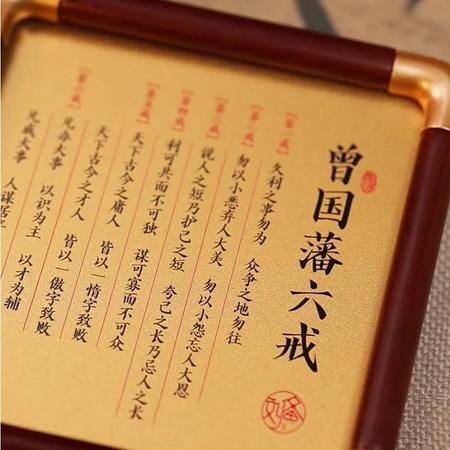 曾国藩六戒
[第一戒]
久利之事勿为 众争之地勿往
[第二戒]
勿以小恶弃人大美 勿以小怨忘人大恩
[第三戒]
说人之短乃护己之短 夸己之长乃忌人之长
[第四戒]
利可共而不可独 谋可寡而不可众
[第五戒]
天下古今之庸人 皆以一惰字致败
天下古今之才人 皆以一傲字致败
[第六戒]
凡办大事 以识为主 以才为辅
凡成大事 人谋居